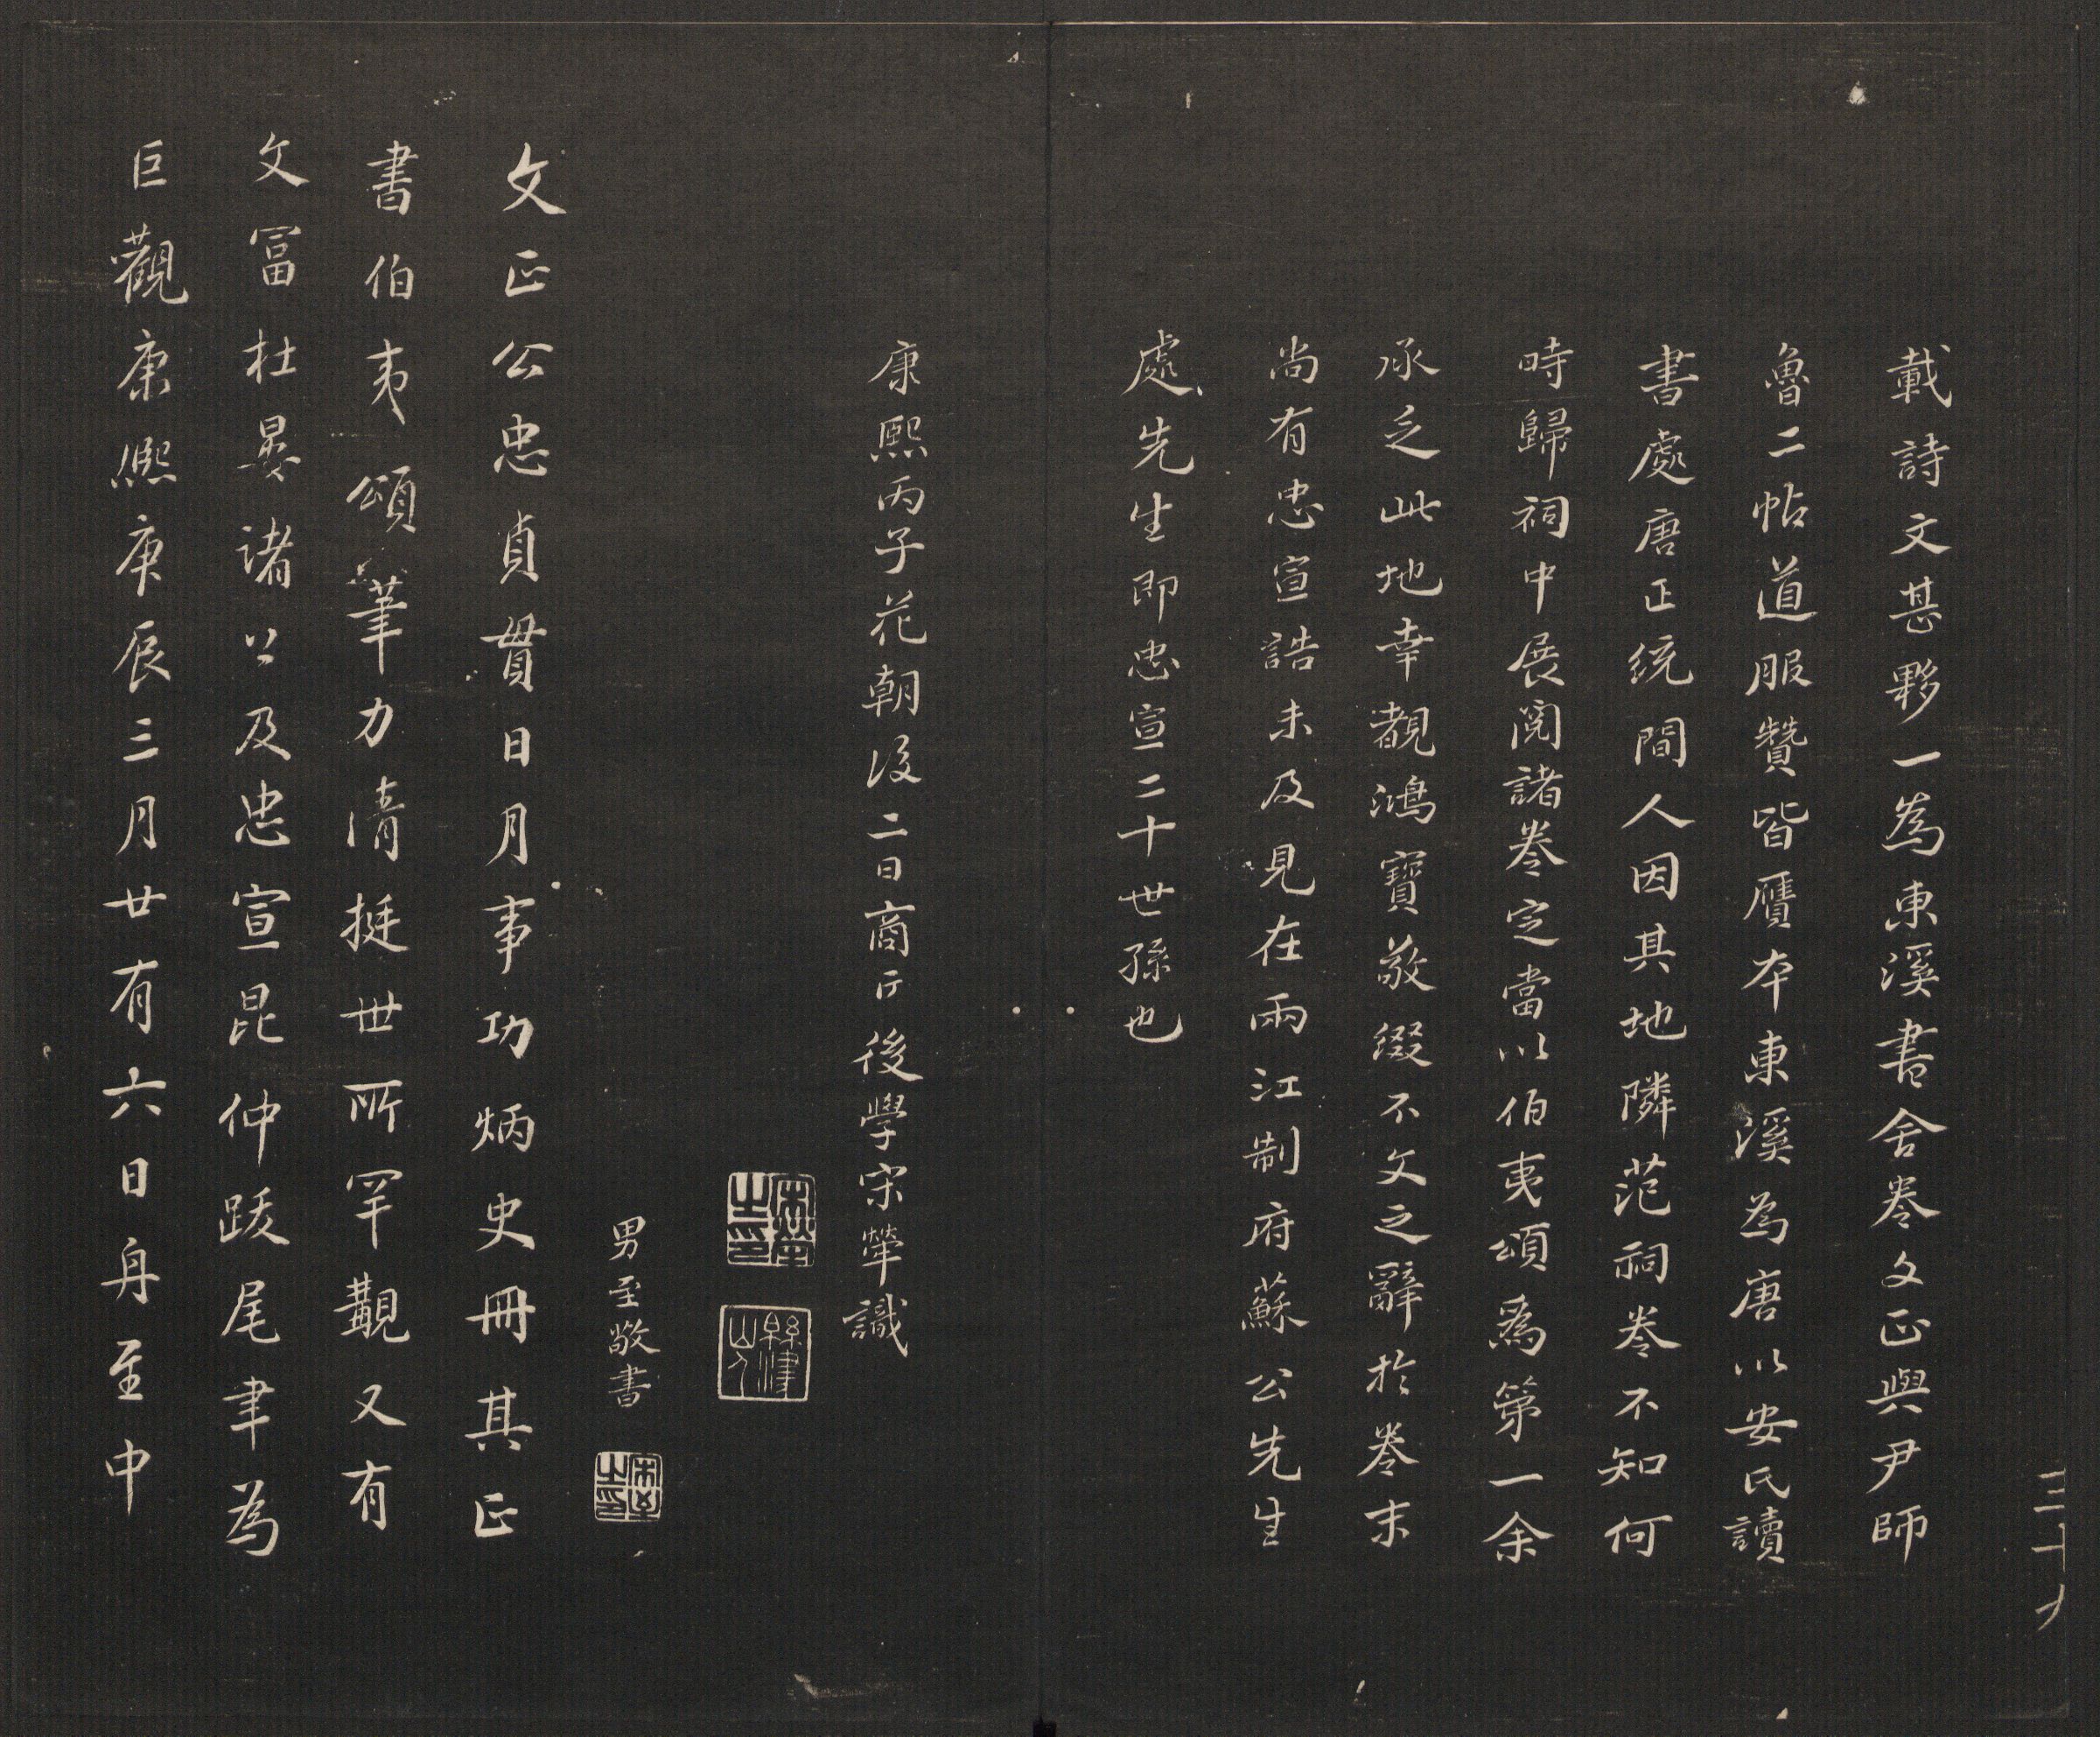 載詩文甚夥一為東溪書舍卷文正與尹師
魯二帖道服贊皆贋本東溪為唐以安氏讀
書處唐正統間人因其地隣范祠卷不知何
時歸祠中展閱諸卷定當以伯夷頌爲第一余
承乏此地幸覩鴻寶敬綴不文之辭於卷末
尚有忠宣誥未及見在兩江制府蘇公先生
處先生即忠宣二十世孫也
康熙丙子花朝後二日商丘後學宋犖識
宋犖之印
緜津山人
男至敬書
宋至之印
文正公忠貞貫日月事功炳史冊其正
書伯夷頌筆力清挺世所罕覯又有
文富杜晏諸公及忠宣昆仲跋尾聿為
巨觀康熙庚辰三月廿有六日舟至中
三十九